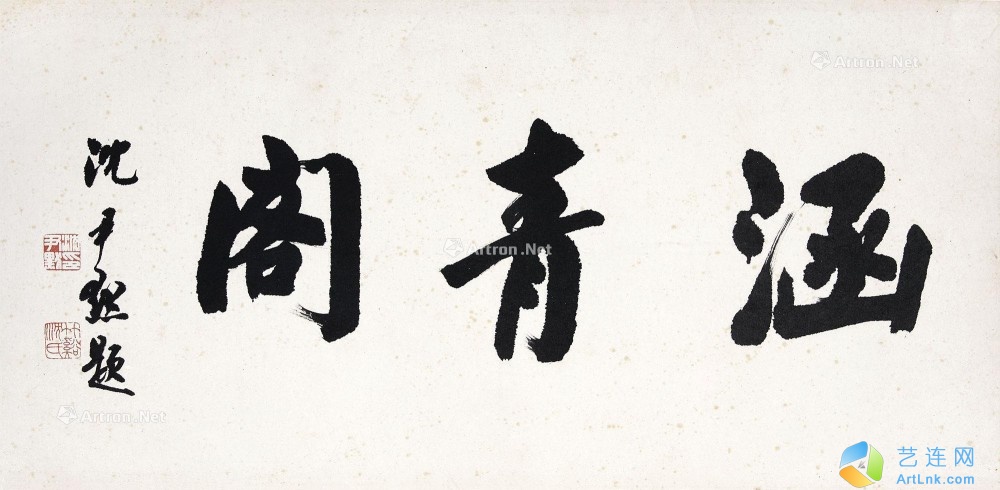 涵青阁
沈尹默题
沈尹默印
竹谿沈氏
Artron.Net
Artron.Net
Artron.Net
艺连网
ArtLnk.com